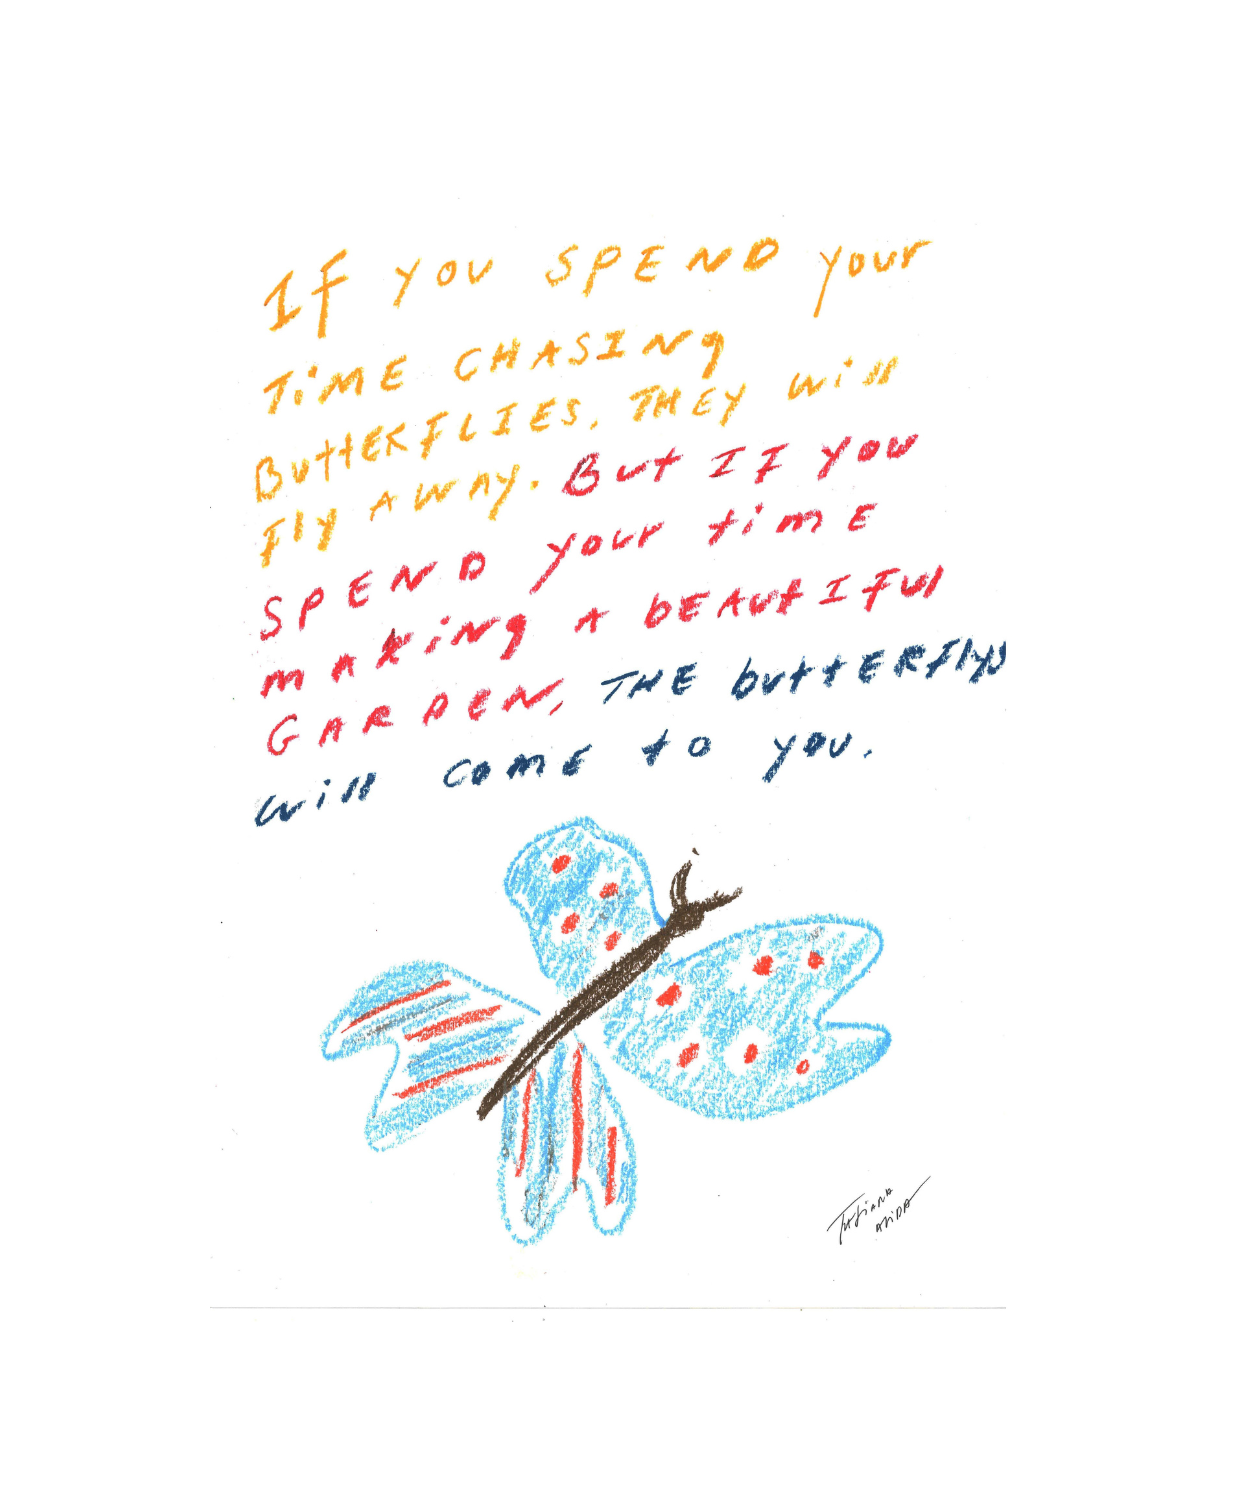 IF you SPEND your
TiME CHASINg
ButtERFLIES, THEY will
Fly AWAy. But IF you
SPEND your timE
mAkiNg A bEAutIFul
GARDEN, THE buttERFlys
will comE to you.
TAtiANA
AliDA